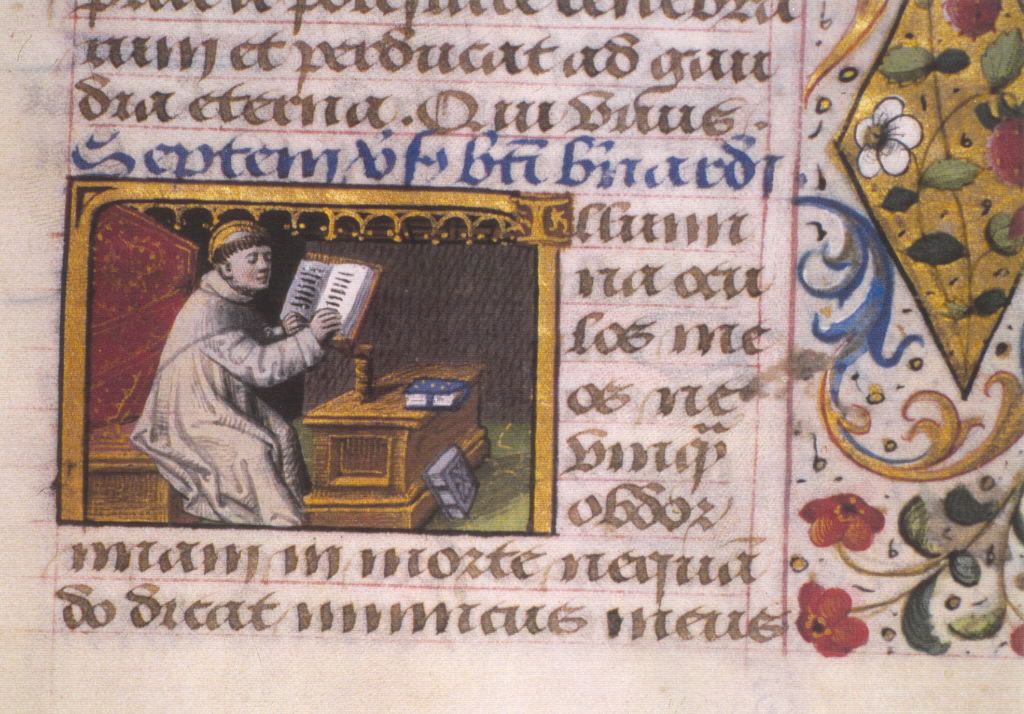 rum et perducat ad gau
dia eterna. Qui viuis.
Septem v̄s bt̄i b̄nardi
Illumi
na ocu
los me
os ne
vnq̄
obdor
miam in morte nequā
do dicat inimicus meus